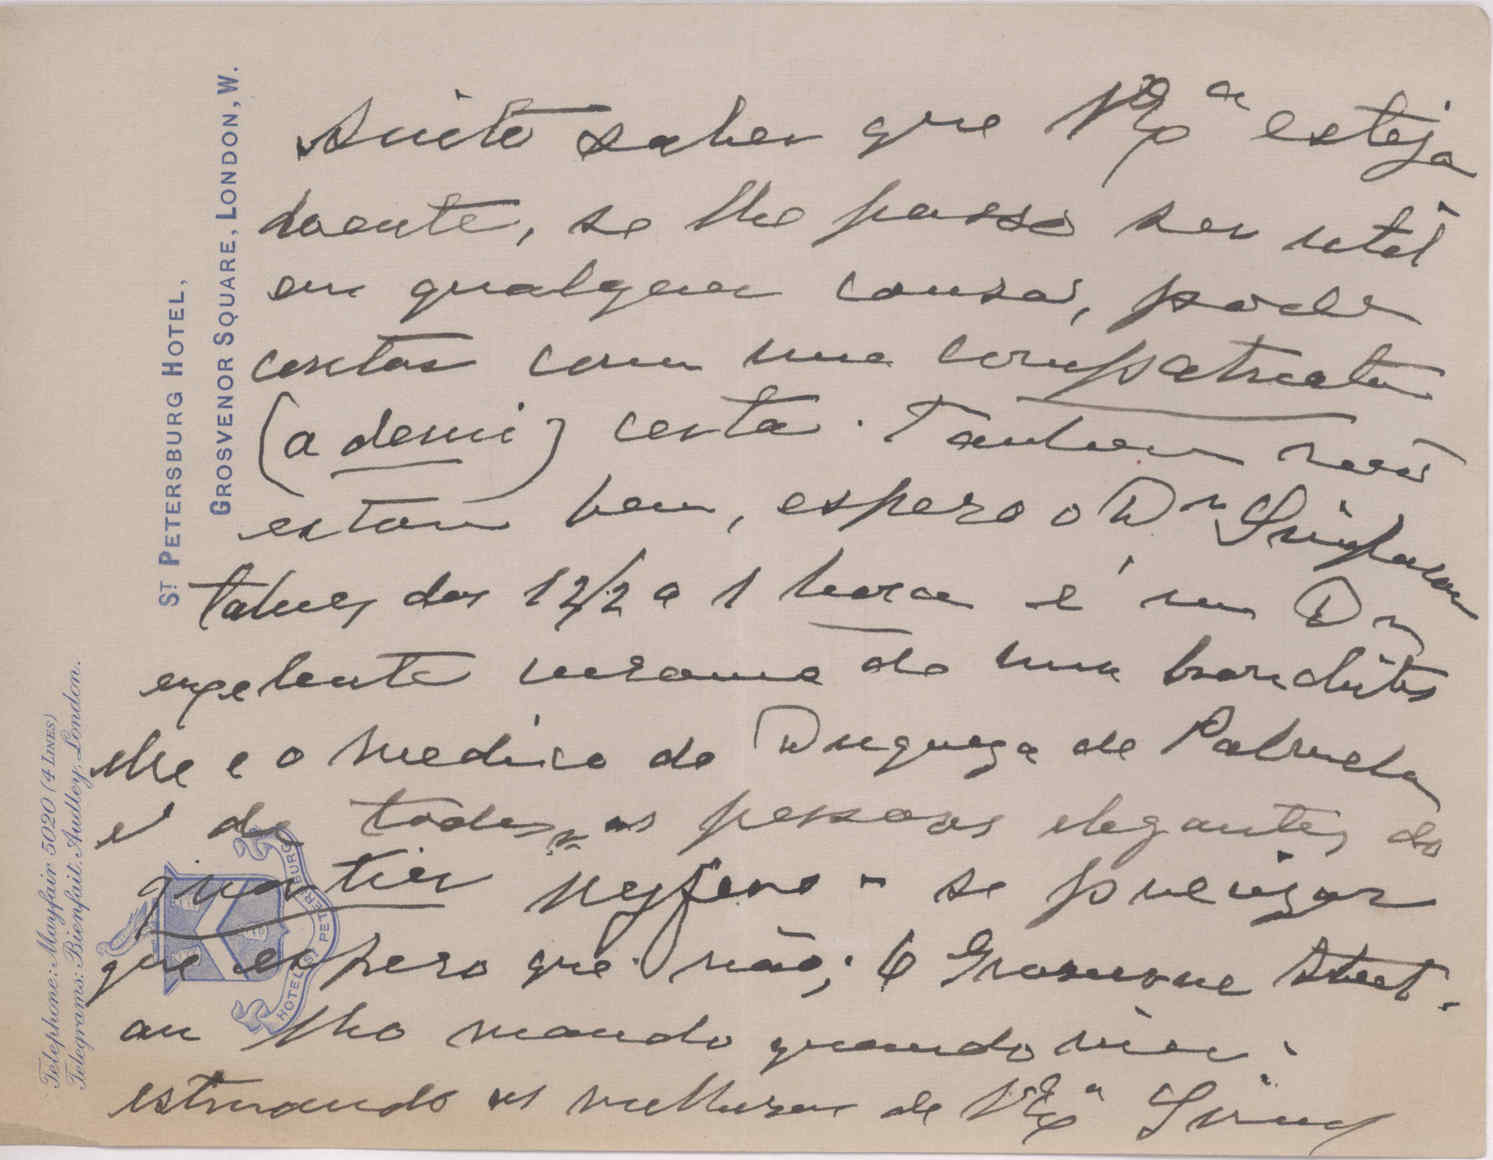 St PETERSBURG HOTEL,
GROSVENOR SQUARE, LONDON, W.
Telephone: Mayfair 5020 (4 LINES)
Telegrams: Bienfait. Audley, London.
HOTEL ST PETERSBURG
Sinto saber que V Exª esteja
doente, se lhe posso ser util
em qualquer cousa, pode
contar com uma compatriota
(a demi) certa. Tambem não
estou bem, espero o Dr
talvez das 12 1/2 a 1 hora é um Dr
expelente mesmo de uma bronchites
elle e o medico da Duqueza de Palmella
e de todas as pessoas elegantes do
quartier se precizar
que espero que não; 6 Grosvenor Street.
ou lho mando quando vier.
estimando as melhoras de V Exª